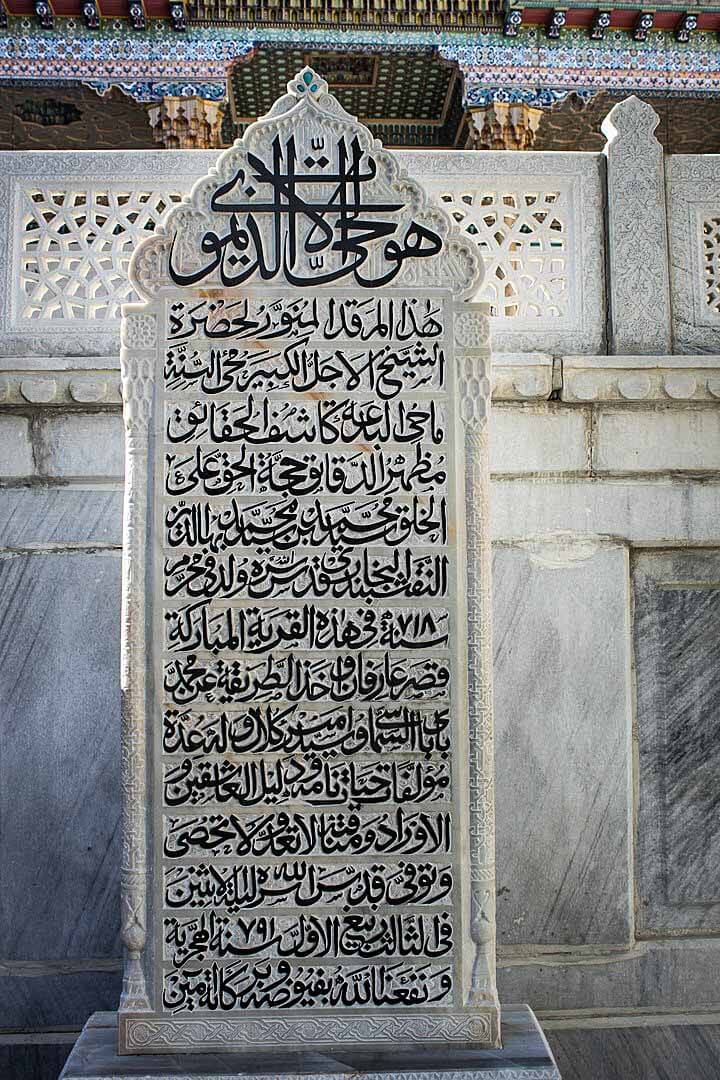 هو الحي الذي لا يموت
هذا المرقد المنور لحضرة
الشيخ الاجل الكبير محى السنة
ماحى البدعة كاشف الحقائق
مظهر الدقائق حجة الحق على
الخلق محمد بن محمد بهاالدين
النقشبندى البخارى قدس سره ولد فى محرم
سنة ٧١٨ فى هذه القرية المباركة
قصر عارفان واخذ الطريقة عن محمد
بابا السماسى وسيد امير كلال وله عدة
مؤلفات حياة نامه ودليل العاشقين و
الاوراد ومناقبة لا تعد ولا تحصى
وتوفى قدس الله سره ليلة الاثنين
فى الثالث ربيع الاول سنة ٧٩١ الهجرية
ونفعنا الله بفيوضه وبركاته آمين